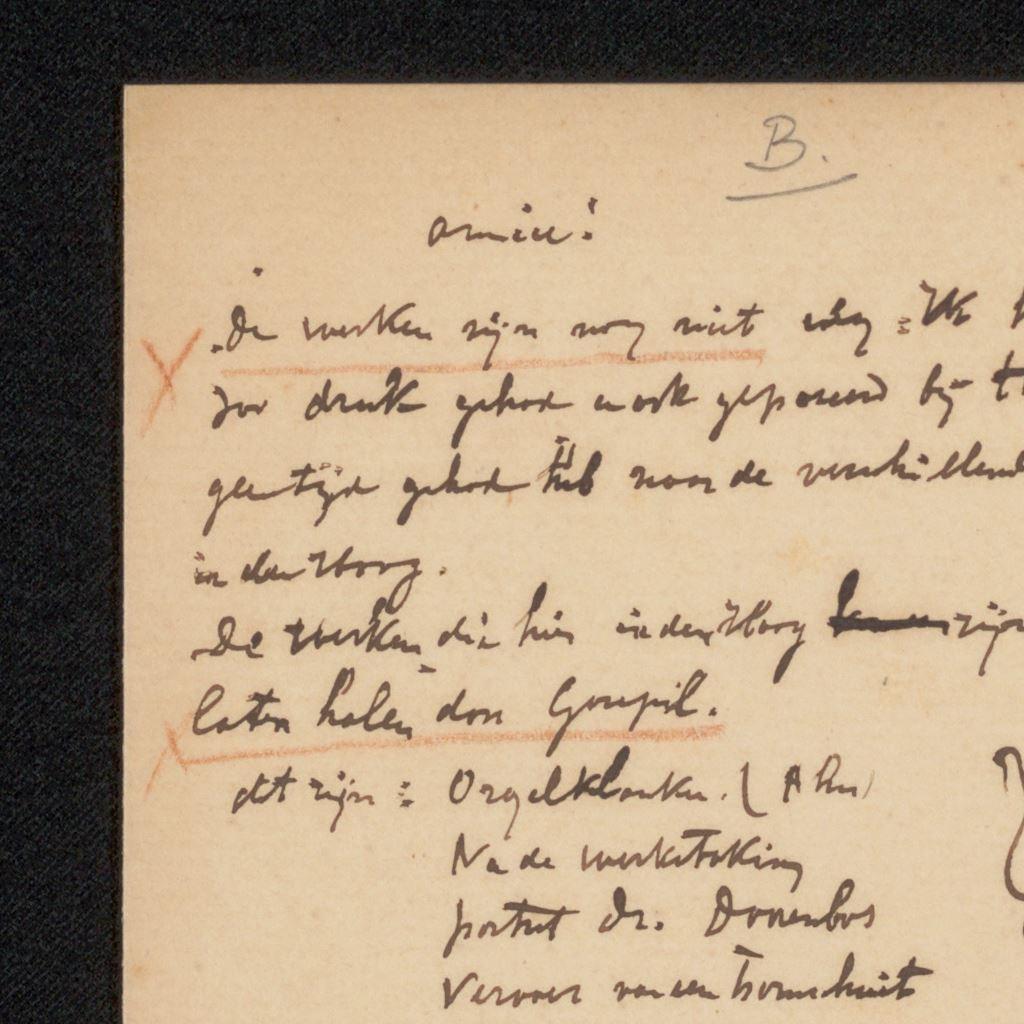 B.
amice!
De werken zijn nog niet weg. Ik
zoo druk gehad ook geposeerd bij
geen tijd gehad heb naar de verschillend
in den Haag.
De werken die hier in den Haag zijn
laten halen door Goupil.
dit zijn: Orgelklanken. (
Na de werkstaking
portret Dr. Doorenbos
Vervoer van een